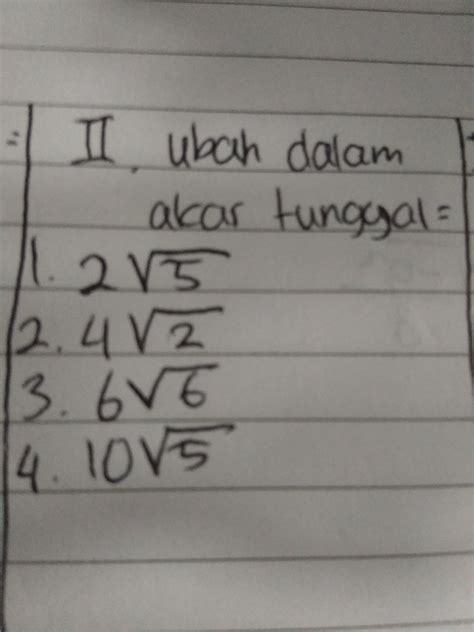 II. ubah dalam
akar tunggal =
1. 2√5
2. 4√2
3. 6√6
4. 10√5